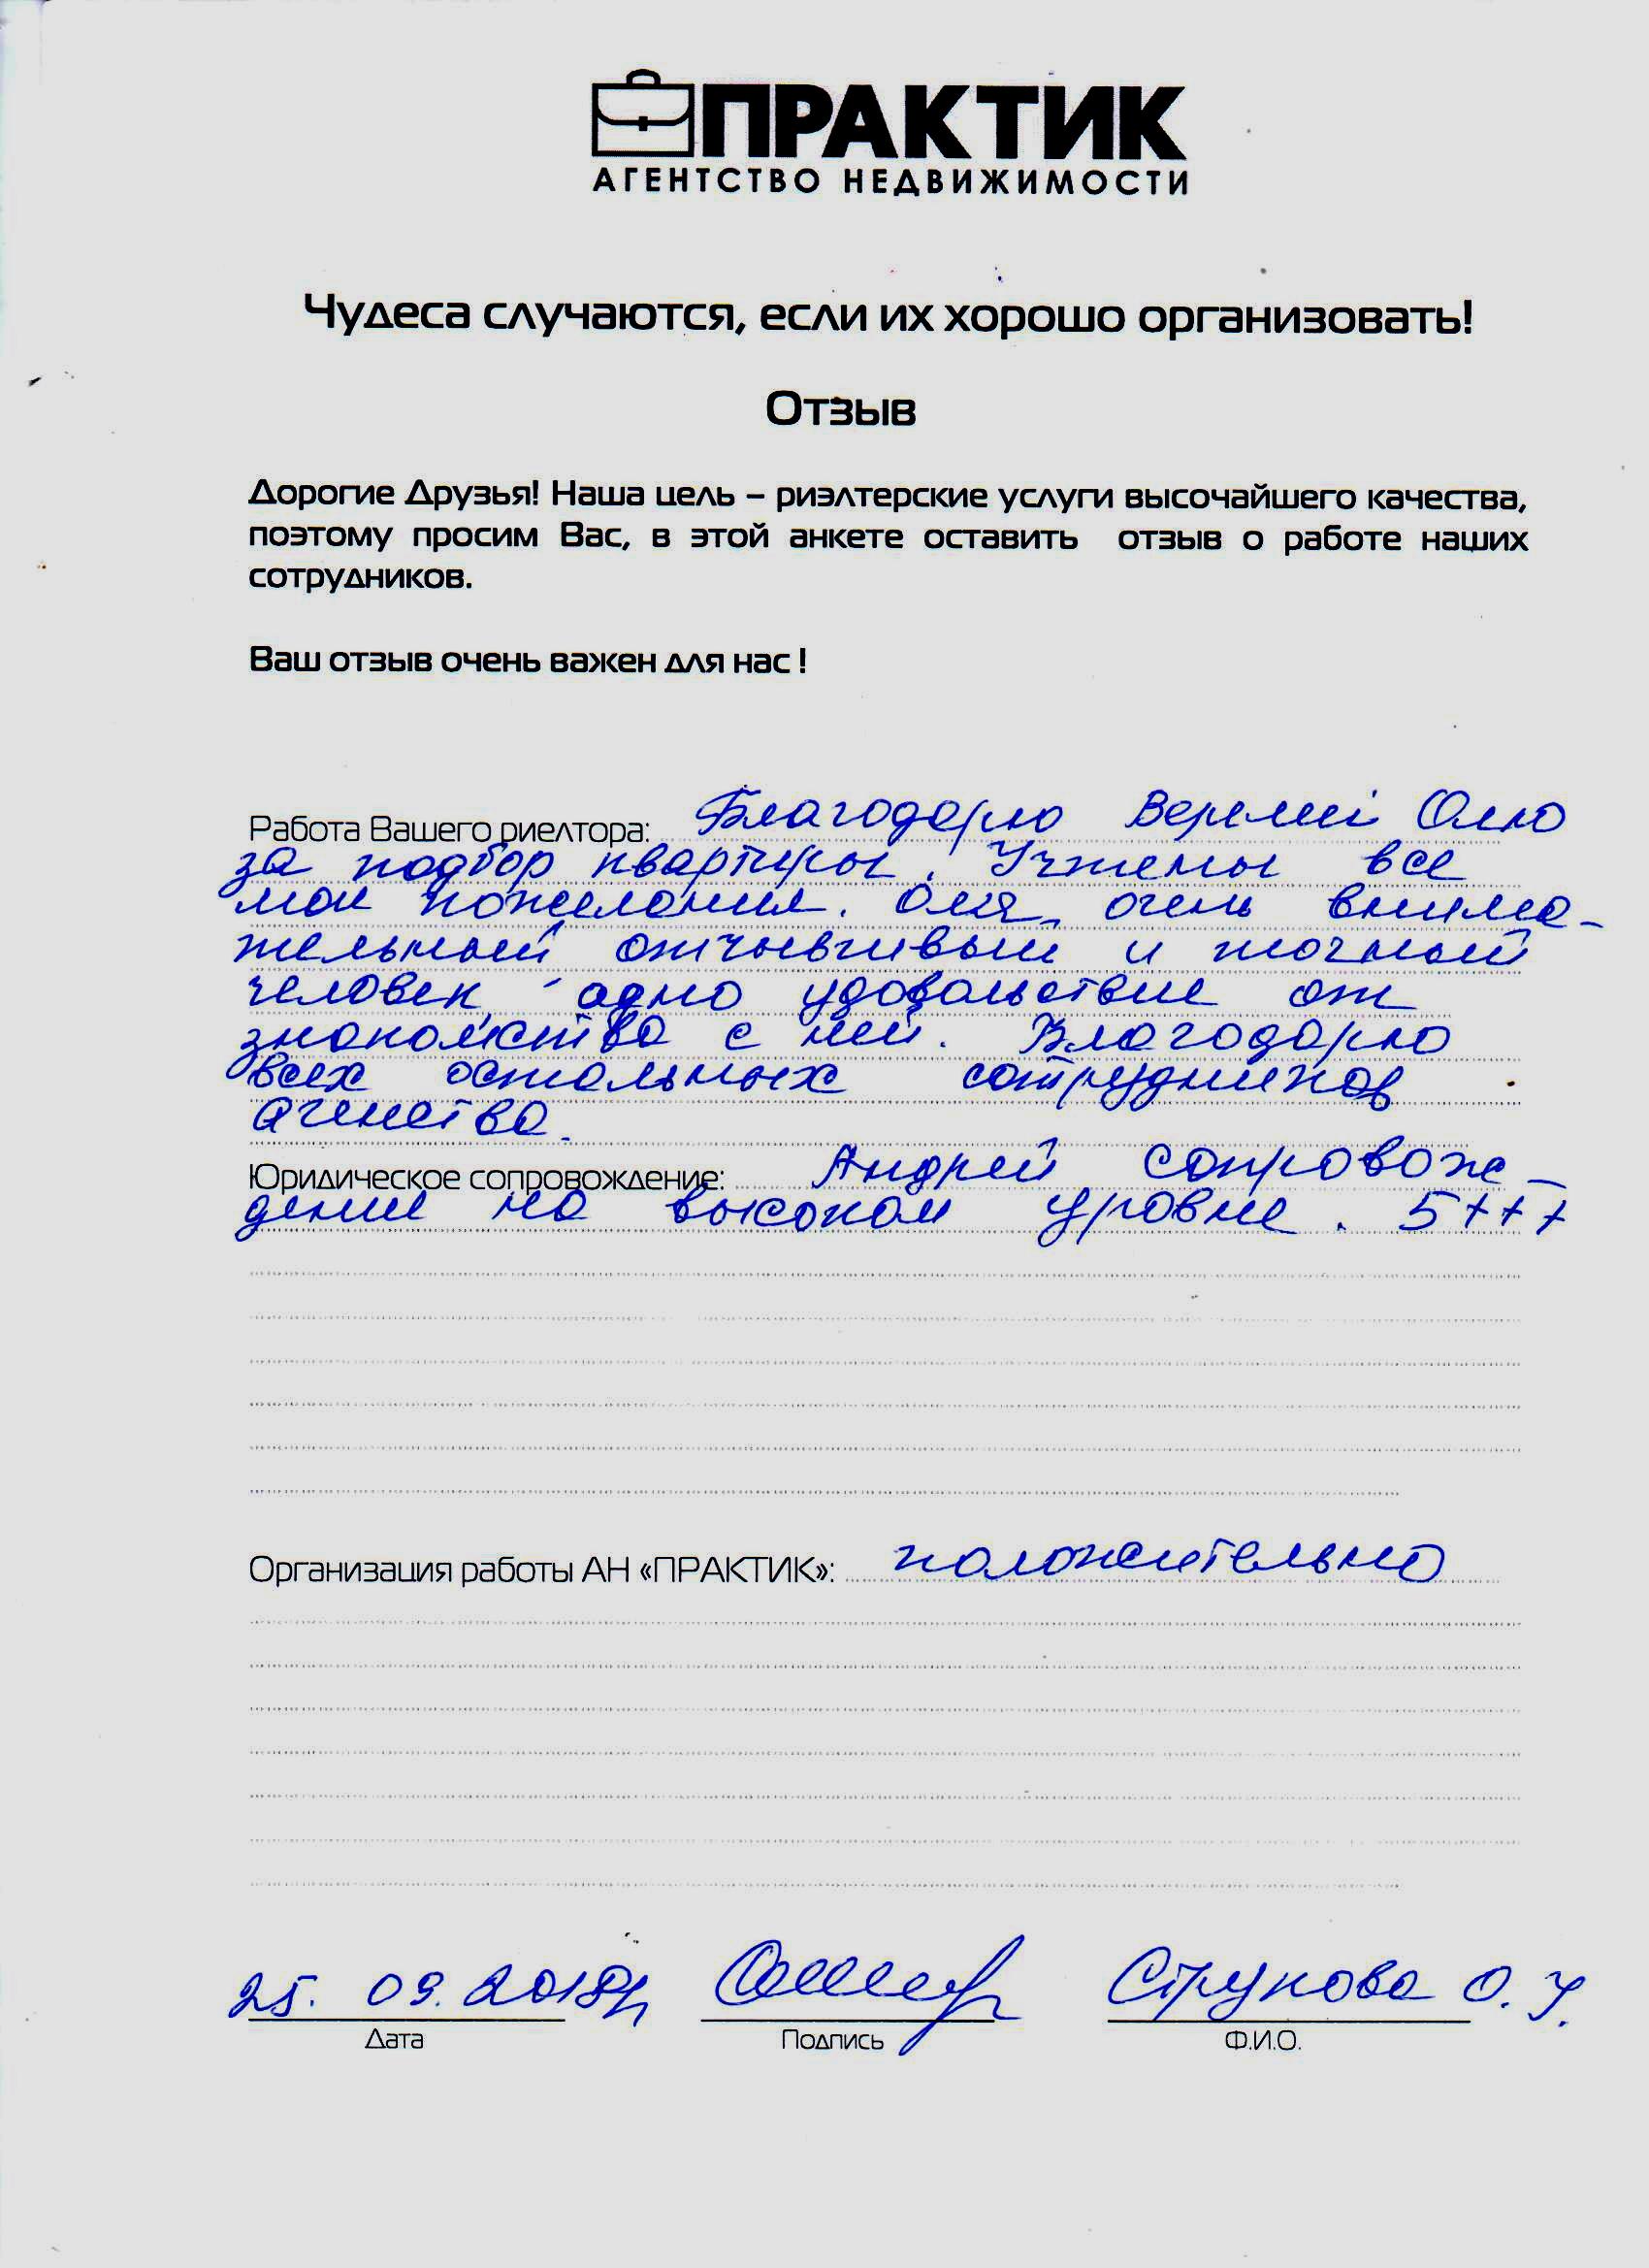 ПРАКТИК
АГЕНТСТВО НЕДВИЖИМОСТИ
Чудеса случаются, если их хорошо организовать!
Отзыв
Дорогие Друзья! Наша цель – риэлтерские услуги высочайшего качества,
поэтому просим Вас, в этой анкете оставить отзыв о работе наших
сотрудников.
Ваш отзыв очень важен для нас !
Работа Вашего риелтора: Благодарю Олю
за подбор квартиры. Учтены все
мои пожелания. Оля, очень внима-
тельный отзывчивый и точный
человек, одно удовольствие от
знакомства с ней. Благодарю
всех остальных сотрудников
агенства.
Юридическое сопровождение: Андрей сопровож-
дение на высоком уровне. 5+++
Организация работы АН «ПРАКТИК»: положительно
25. 09. 2018г. Струкова О. У.
Дата Подпись Ф.И.О.